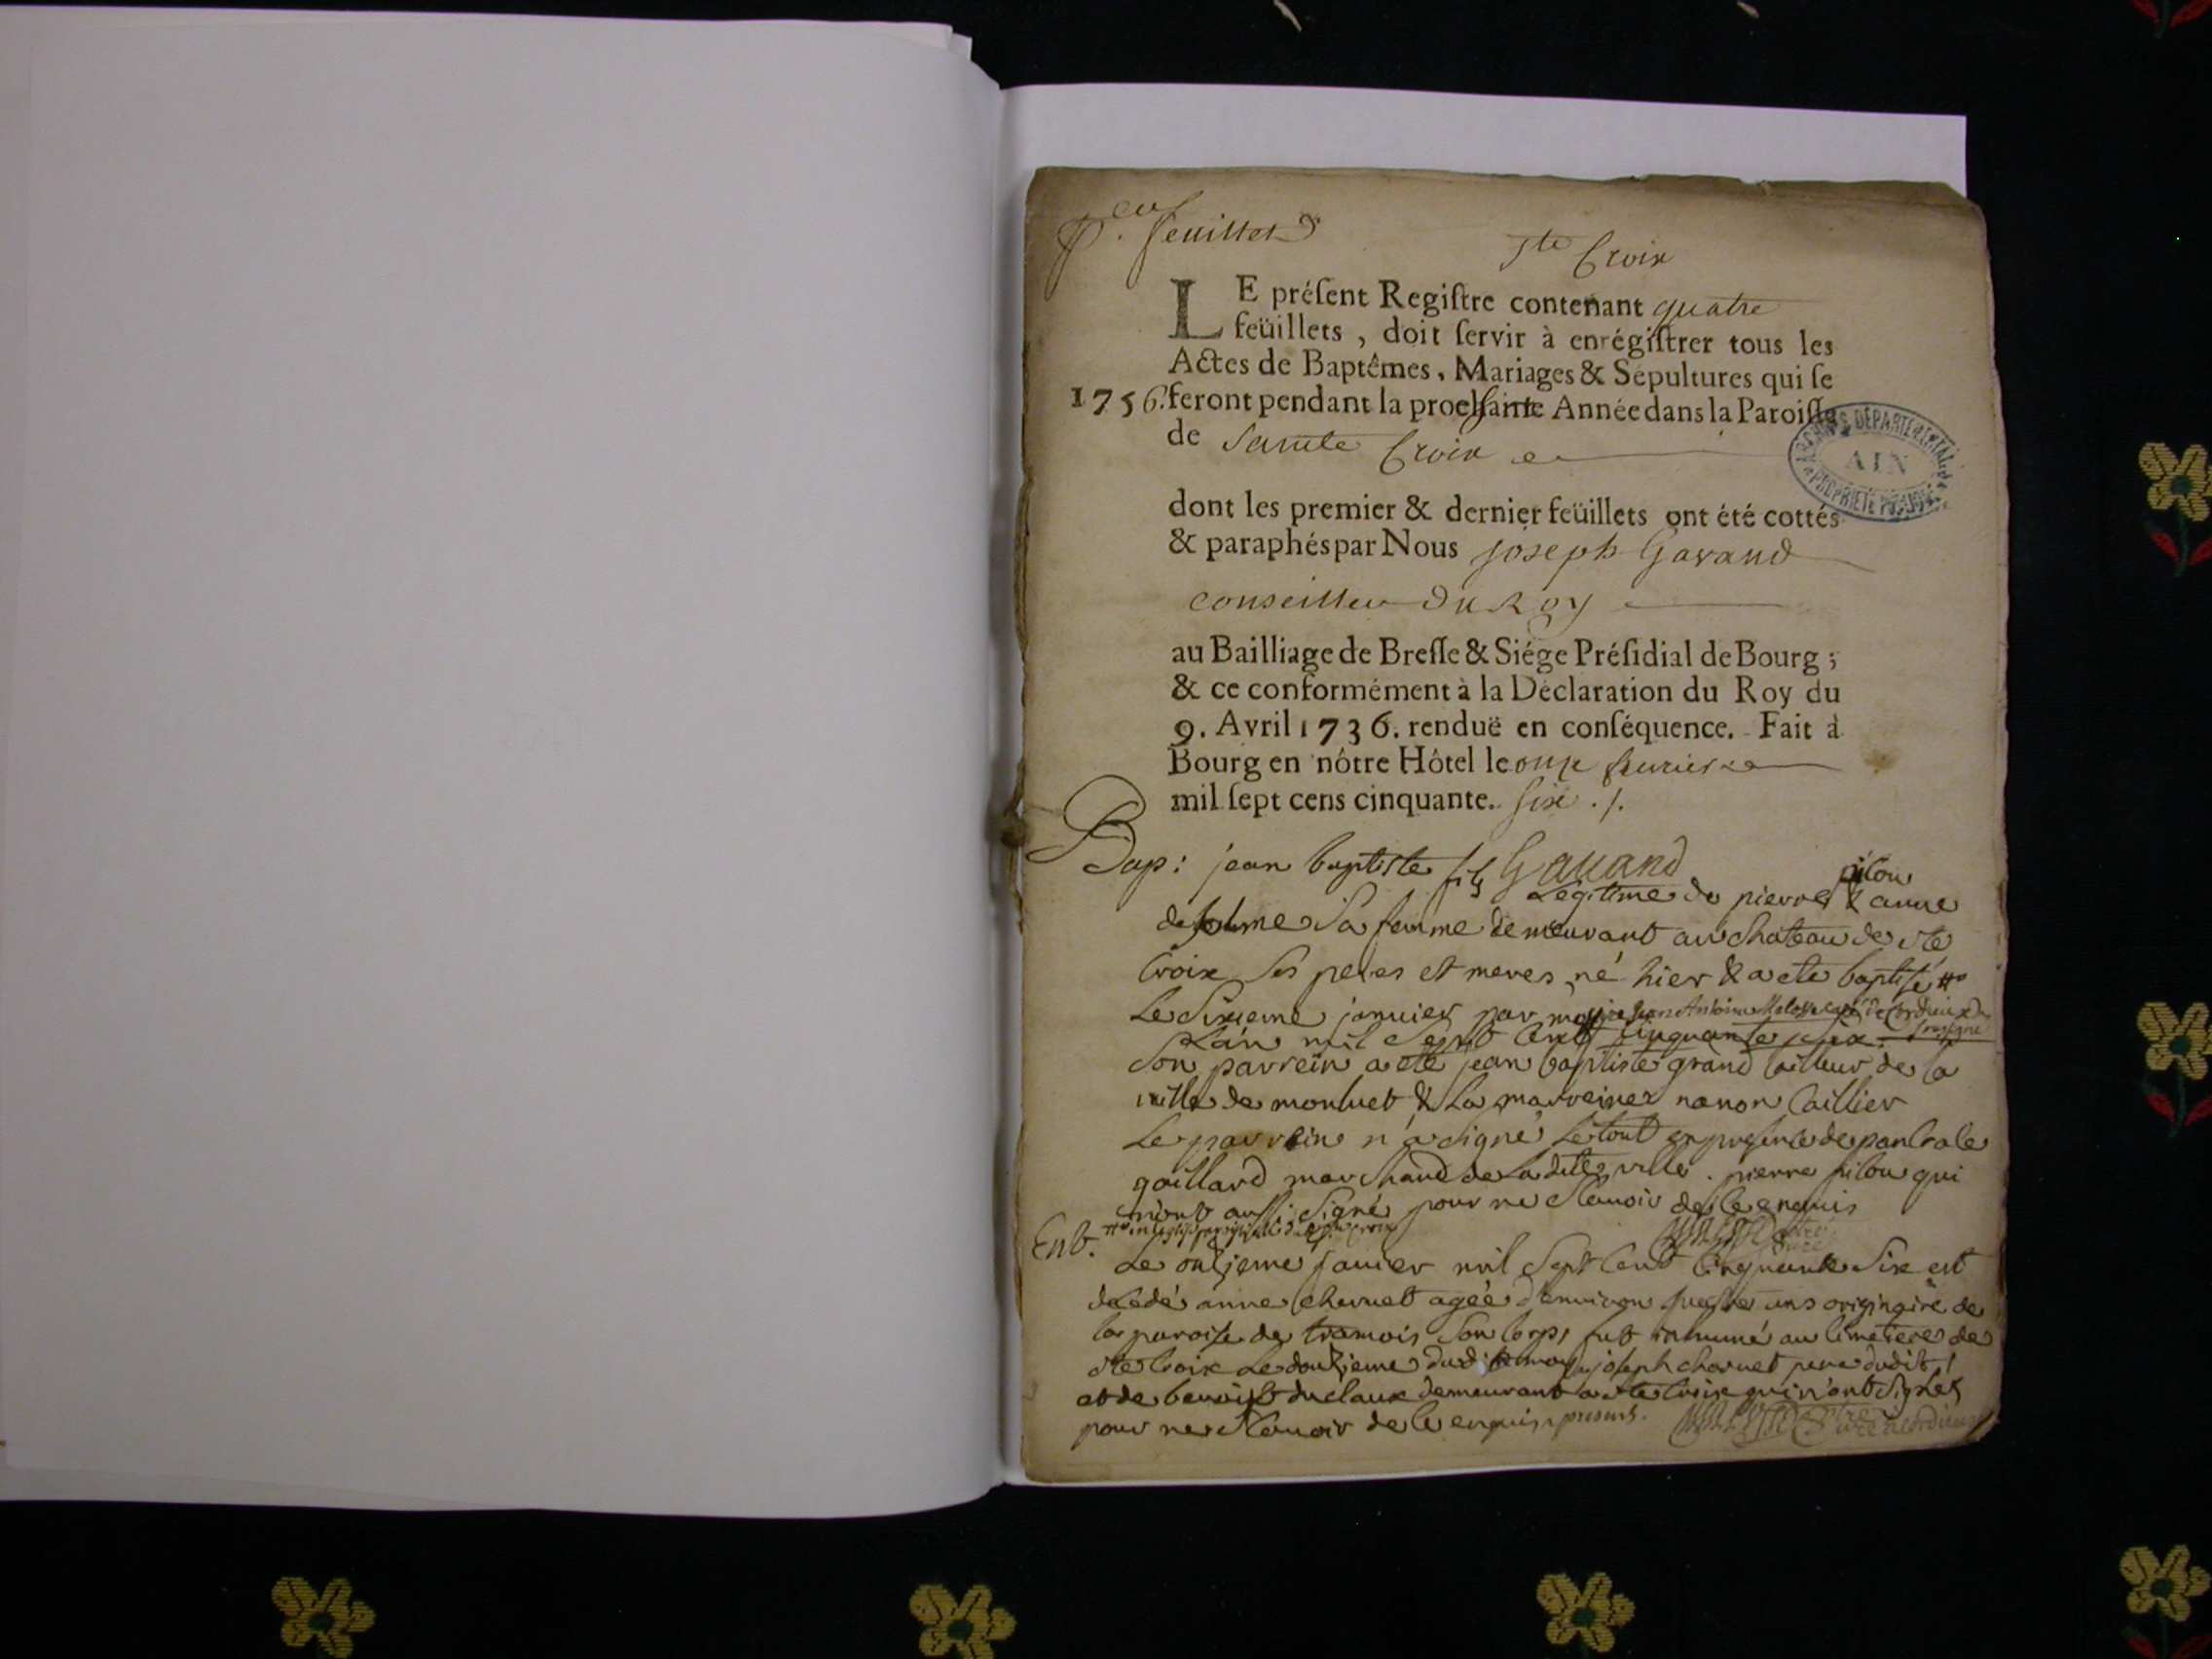 P.er feuillet
Ste Croix
LE préſent Regiſtre contenant quatre
feüillets , doit ſervir à enrégiſtrer tous les
Actes de Baptêmes, Mariages & Sépultures qui ſe
1756. feront pendant la Année dans la Paroiſſe
de Sainte Croix
ARCHIVES DEPARTEMENTALES
AIN
PROPRIETE PUBLIQUE
dont les premier & dernier feüillets ont été cottés
& paraphés par Nous joseph Gavand
conseiller du Roy
au Bailliage de Breſſe & Siége Préſidial de Bourg ;
& ce conformément à la Déclaration du Roy du
9. Avril 1736. renduë en conſéquence. Fait à
Bourg en nôtre Hôtel le onze feurier
mil ſept cens cinquante. six ./.
Gauand
Bap: jean baptiste fils Legitime de pierre pilon & anne
sa femme demeurant au chateau de ste
Croix ses peres et meres, né hier & a eté baptisé
Le Sixieme janvier par Jean Antoine curé de Cordieux
L'an mil Sept Cent Cinquante six
Son parrein a eté jean baptiste grand tailleur de la
ville de monluet & La marreine nanon Caillier
Le parrein n'a signé Le tout en presence de
gaillard marchand de La ditte ville . pierre pilon qui
n'ont aussi signé pour ne sçauoir de ce enquis
Ent.
Le onzieme janvier mil Sept Cent Cinquante Six est
decedé anne charuet agée d'environ quatre ans originaire de
la paroisse de tramois Son corps fut inhumé au cimetiere de
ste Croix Le douzieme dudit joseph charuet pere dudit
et de benoist duclaux demeurant a ste Croix qui n'ont signés
pour ne sçauoir de ce enquis presents.